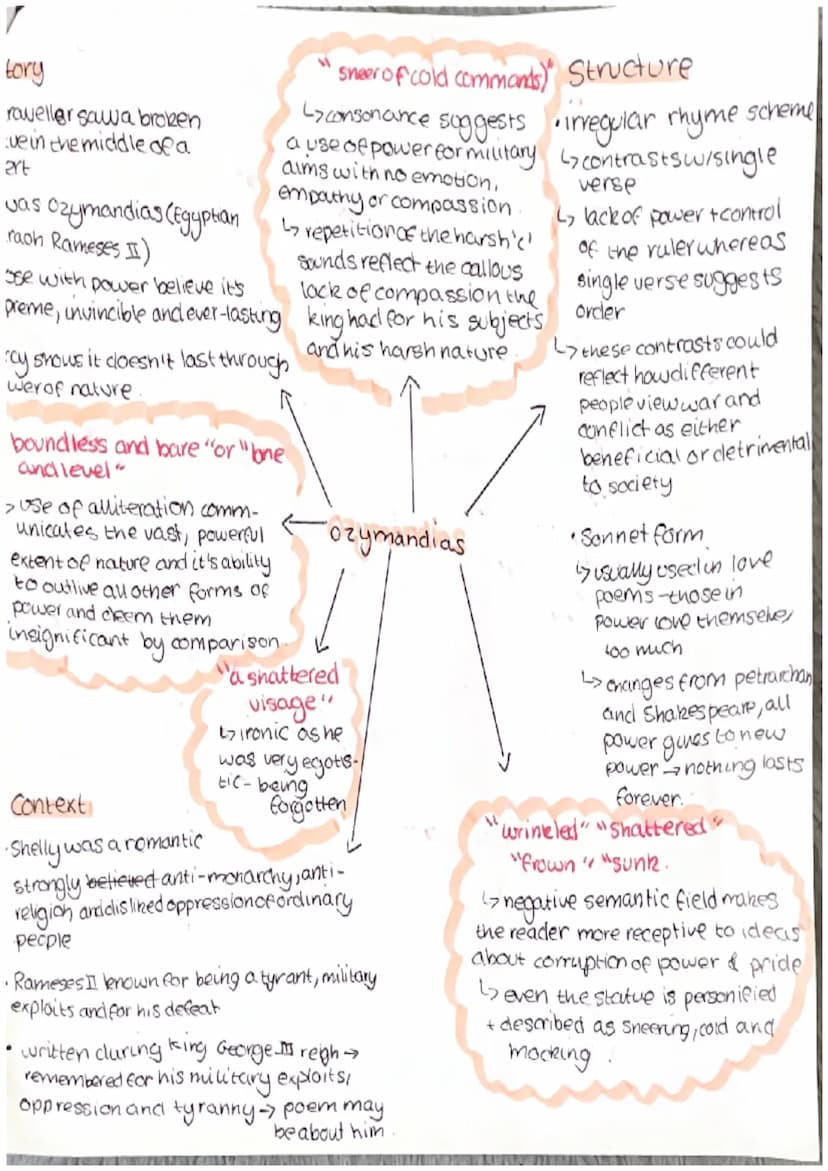 tory
raveller saw a broken
ue in the middle of a
ert
was Ozymandias (Egyptian
raoh Rameses II)
ose with power believe it's
preme, invincible and ever-lasting
cy shows it doesn't last through
wer of nature.
"sneer of cold commands)"
↳ consonance suggests
a use of power for military
aims with no emotion,
empathy or compassion.
↳ repetition of the harsh 'c'
sounds reflect the callous
lack of compassion the
king had for his subjects
and his harsh nature.
Structure
• irregular rhyme scheme
↳ contrasts w/single
verse
↳ lack of power + control
of the ruler whereas
single verse suggests
order
↳ these contrasts could
reflect how different
people view war and
conflict as either
beneficial or detrimental
to society
• Sonnet form
↳ usually used in love
poems - those in
power love themselves
too much
↳ changes from petrarchan
and Shakespeare, all
power gives to new
power → nothing lasts
forever.
boundless and bare "or "lone
and level"
> use of alliteration comm-
unicates the vast, powerful
extent of nature and it's ability
to outlive all other forms of
power and deem them
insignificant by comparison.
Ozymandias
"a shattered
visage"
↳ ironic as he
was very egotis-
tic - being
forgotten
Context
• Shelly was a romantic
strongly believed anti-monarchy, anti-
religion and disliked oppression of ordinary
people
• Rameses II known for being a tyrant, military
exploits and for his defeat
• written during King George III reign →
remembered for his military exploits,
oppression and tyranny → poem may
be about him.
"wrinkled" "shattered"
"frown" "sunk.
↳ negative semantic field makes
the reader more receptive to ideas
about corruption of power & pride
↳ even the statue is personified
+ described as sneering, cold and
mocking.